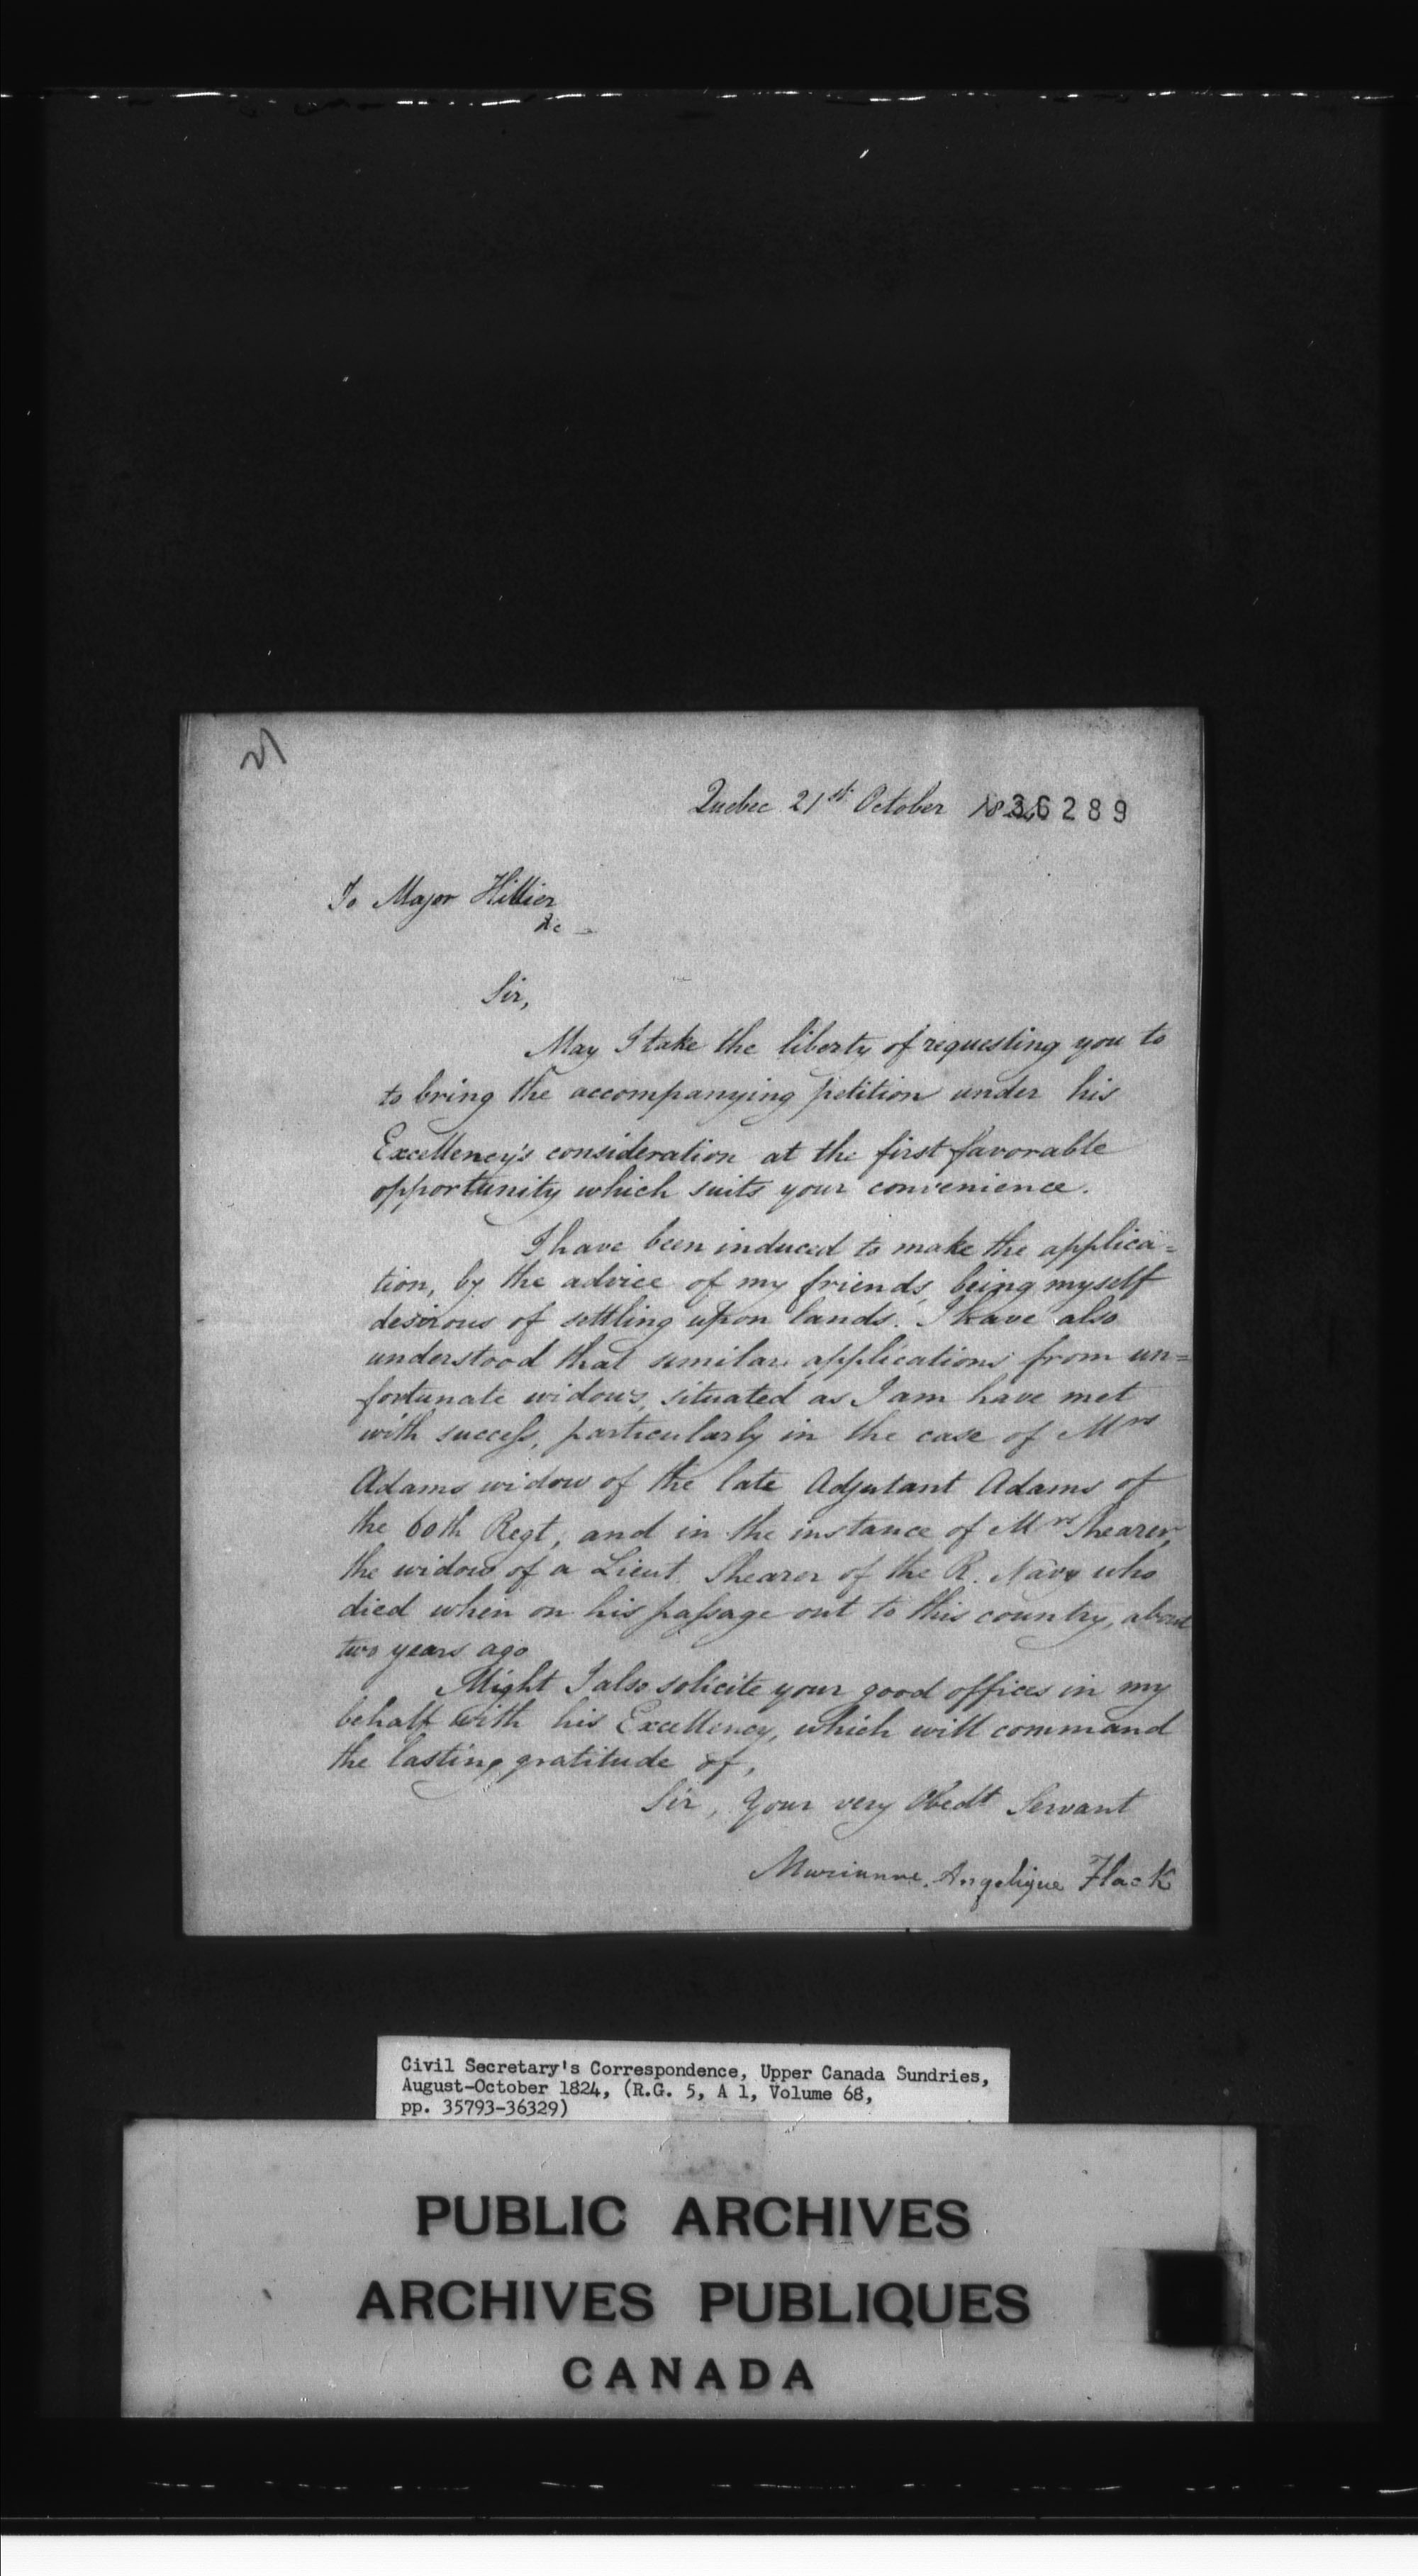 Quebec 21st October 1824
36289
To Major Hillier
&c
Sir,
May I take the liberty of requesting you to
to bring the accompanying petition under his
Excellency's consideration at the first favorable
opportunity which suits your convenience.
I have been induced to make the applica=
tion, by the advice of my friends, being myself
desirous of settling upon lands. I have also
understood that similar applications from un=
fortunate widows, situated as I am have met
with success, particularly in the case of Mrs
Adams widow of the late Adjutant Adams of
the 60th Regt, and in the instance of Mrs Shearer,
the widow of a Lieut. Shearer of the R. Navy who
died when on his passage out to this country, about
two years ago
Might I also solicite your good offices in my
behalf with his Excellency, which will command
the lasting gratitude of,
Sir, Your very Obedt Servant
Marianne Angelique Flack
Civil Secretary's Correspondence, Upper Canada Sundries,
August-October 1824, (R.G. 5, A 1, Volume 68,
pp. 35793-36329)
PUBLIC ARCHIVES
ARCHIVES PUBLIQUES
CANADA